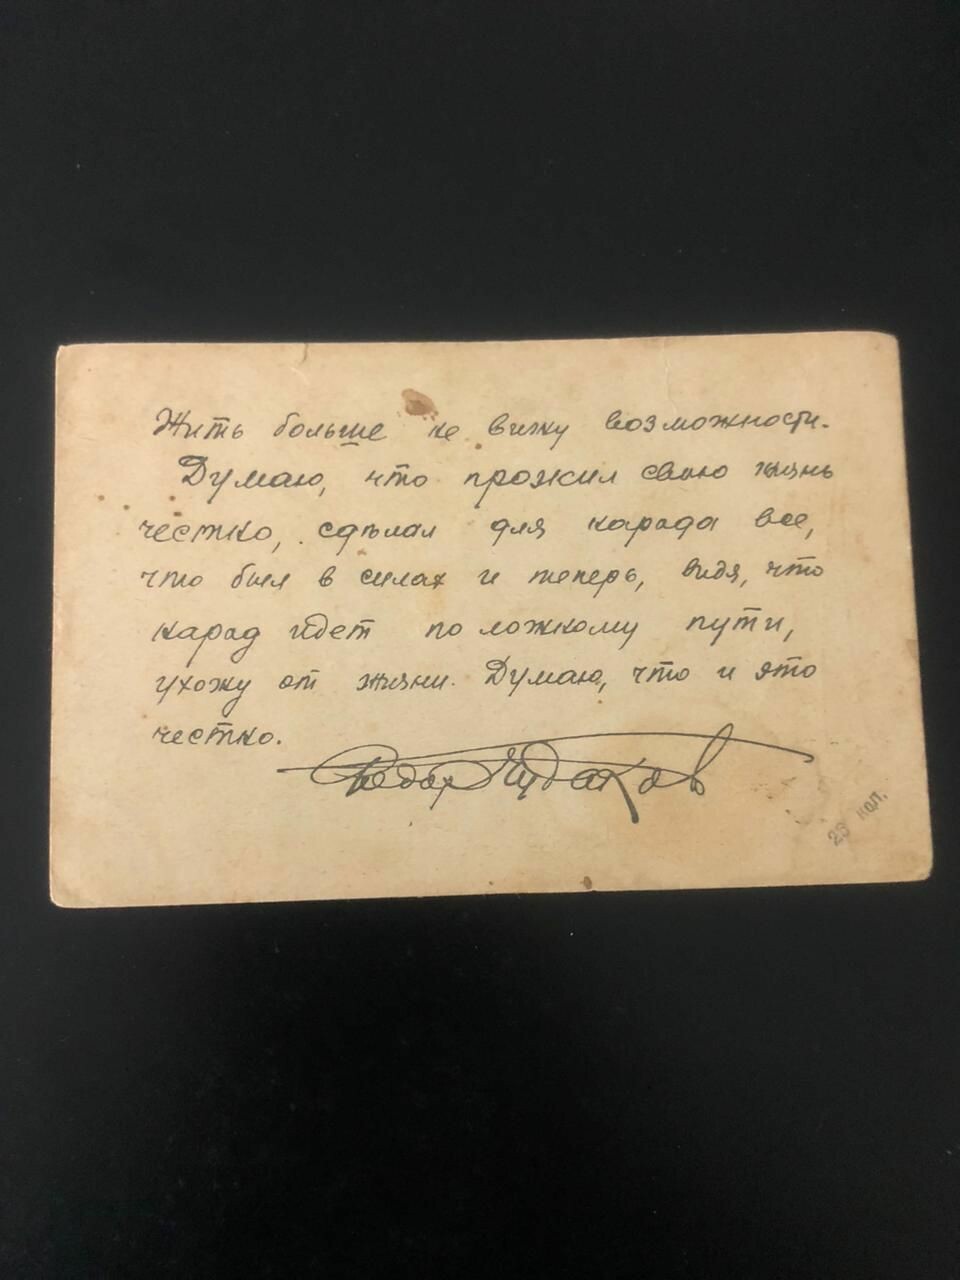 Жить больше не вижу возможности.
Думаю, что прожил свою жизнь
честно, сдѣлал для народа все,
что был в силах и теперь, видя, что
народ идет по ложному пути,
ухожу от жизни. Думаю, что и это
честно.
Федор Чудаков
25 коп.